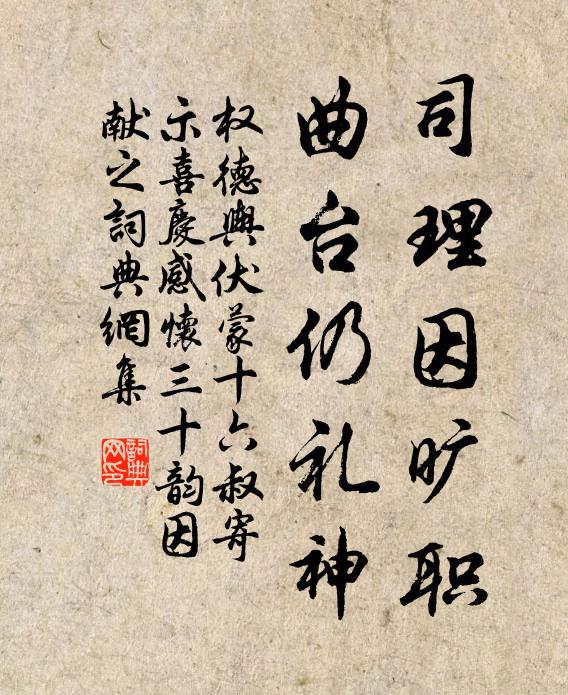 司理因旷职
曲台仍礼神
权德輿伏蒙十六叔寄
示喜慶感懷三十韵因
献之詞典網集
詞典网印